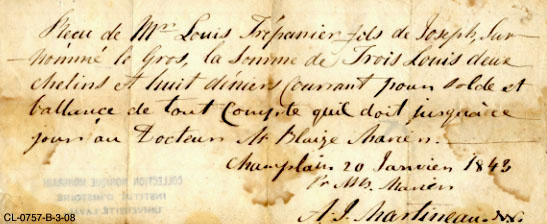 Recu de Mr. Louis Trépanier fils de Joseph, Sur-
nommé le Gros, la Somme de Trois Louis deux
chelins et huit déniers Courrant pour Solde et
ballance de tout Compte quil doit jusquà ce
jour au Docteur St Blaize Marien.
Champlain 20 Janvier 1843
Pr Marien
A. J. Martineau
COLLECTION MONIQUE
INSTITUT D'HISTOIRE
UNIVERSITÉ LAVAL
CL-0757-B-3-08